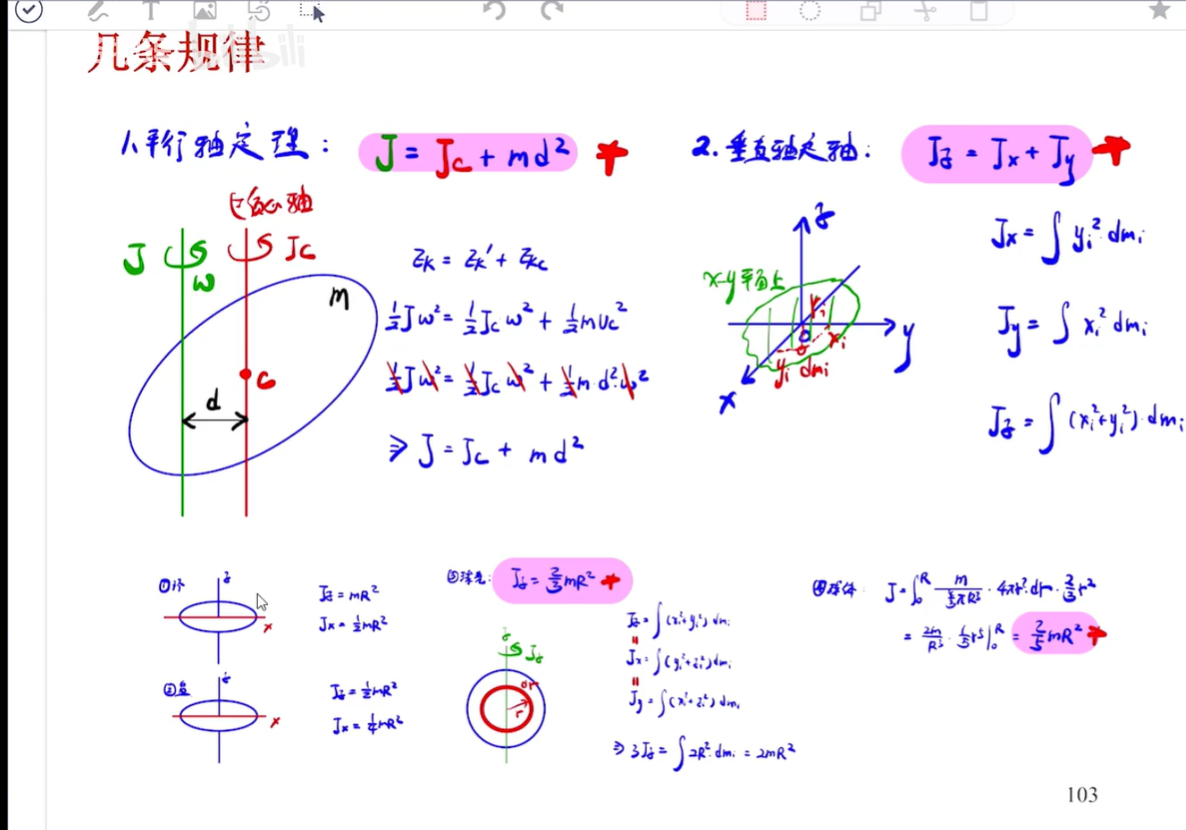 几条规律
bilibili
1.平行轴定理: J = Jc + md²
过质心轴
J ω Jc
m
c
d
Ek = Ek' + Ekc
½Jω² = ½Jcω² + ½mvc²
½Jω² = ½Jcω² + ½m·d²·ω²
⇒ J = Jc + md²
2.垂直轴定轴: Jz = Jx + Jy
z
x-y平面上
ri
o
xi
yi dmi
y
x
Jx = ∫ yi²·dmi
Jy = ∫ xi²dmi
Jz = ∫(xi²+yi²)·dmi
①环
z
x
Jz = mR²
Jx = ½mR²
②盘
z
x
Jz = ½mR²
Jx = ¼mR²
③球壳: Jz = ⅔mR²
z
Jz
dr
r
Jz = ∫(xi²+yi²)dmi
=
Jx = ∫(yi²+zi²)dmi
=
Jy = ∫(xi²+zi²)dmi
⇒ 3Jz = ∫2R²·dmi = 2mR²
④球体: J = ∫₀ᴿ m/(4/3 πR³) · 4πr²·dr · ⅔r²
= 2m/R³ · ⅕r⁵|₀ᴿ = ⅖mR²
103